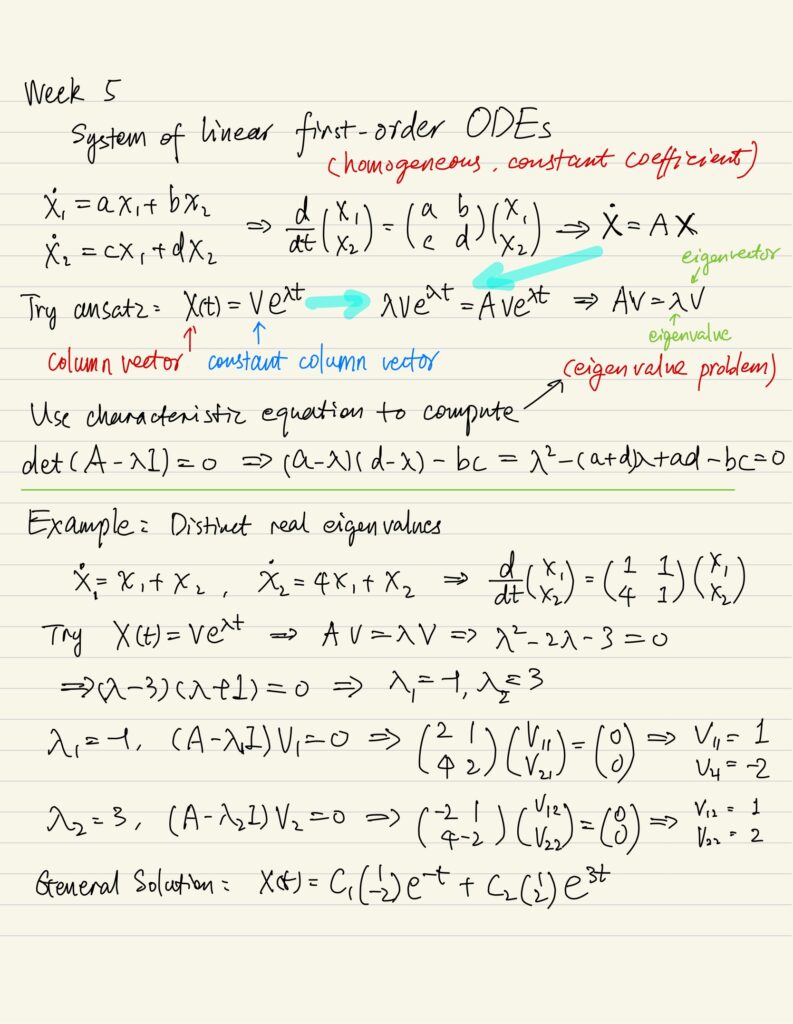 Week 5
System of linear first-order ODEs
(homogeneous, constant coefficient)
ẋ₁ = ax₁ + bx₂
ẋ₂ = cx₁ + dx₂ ⇒ d/dt (x₁ x₂) = (a b c d)(x₁ x₂) ⇒ Ẋ = AX
eigenvector
Try ansatz: X(t) = Ve^λt → λVe^λt = AVe^λt ⇒ AV = λV
column vector constant column vector eigenvalue
(eigenvalue problem)
Use characteristic equation to compute
det(A-λI) = 0 ⇒ (a-λ)(d-λ) - bc = λ² - (a+d)λ + ad - bc = 0
Example: Distinct real eigenvalues
ẋ₁ = x₁ + x₂, ẋ₂ = 4x₁ + x₂ ⇒ d/dt (x₁ x₂) = (1 1 4 1)(x₁ x₂)
Try X(t) = Ve^λt ⇒ AV = λV ⇒ λ² - 2λ - 3 = 0
⇒ (λ-3)(λ+1) = 0 ⇒ λ₁ = -1, λ₂ = 3
λ₁ = -1, (A-λ₁I)V₁ = 0 ⇒ (2 1 4 2)(V₁₁ V₂₁) = (0 0) ⇒ V₁₁ = 1
V₂₁ = -2
λ₂ = 3, (A-λ₂I)V₂ = 0 ⇒ (-2 1 4 -2)(V₁₂ V₂₂) = (0 0) ⇒ V₁₂ = 1
V₂₂ = 2
General Solution: X(t) = C₁(1 -2)e^-t + C₂(1 2)e^3t